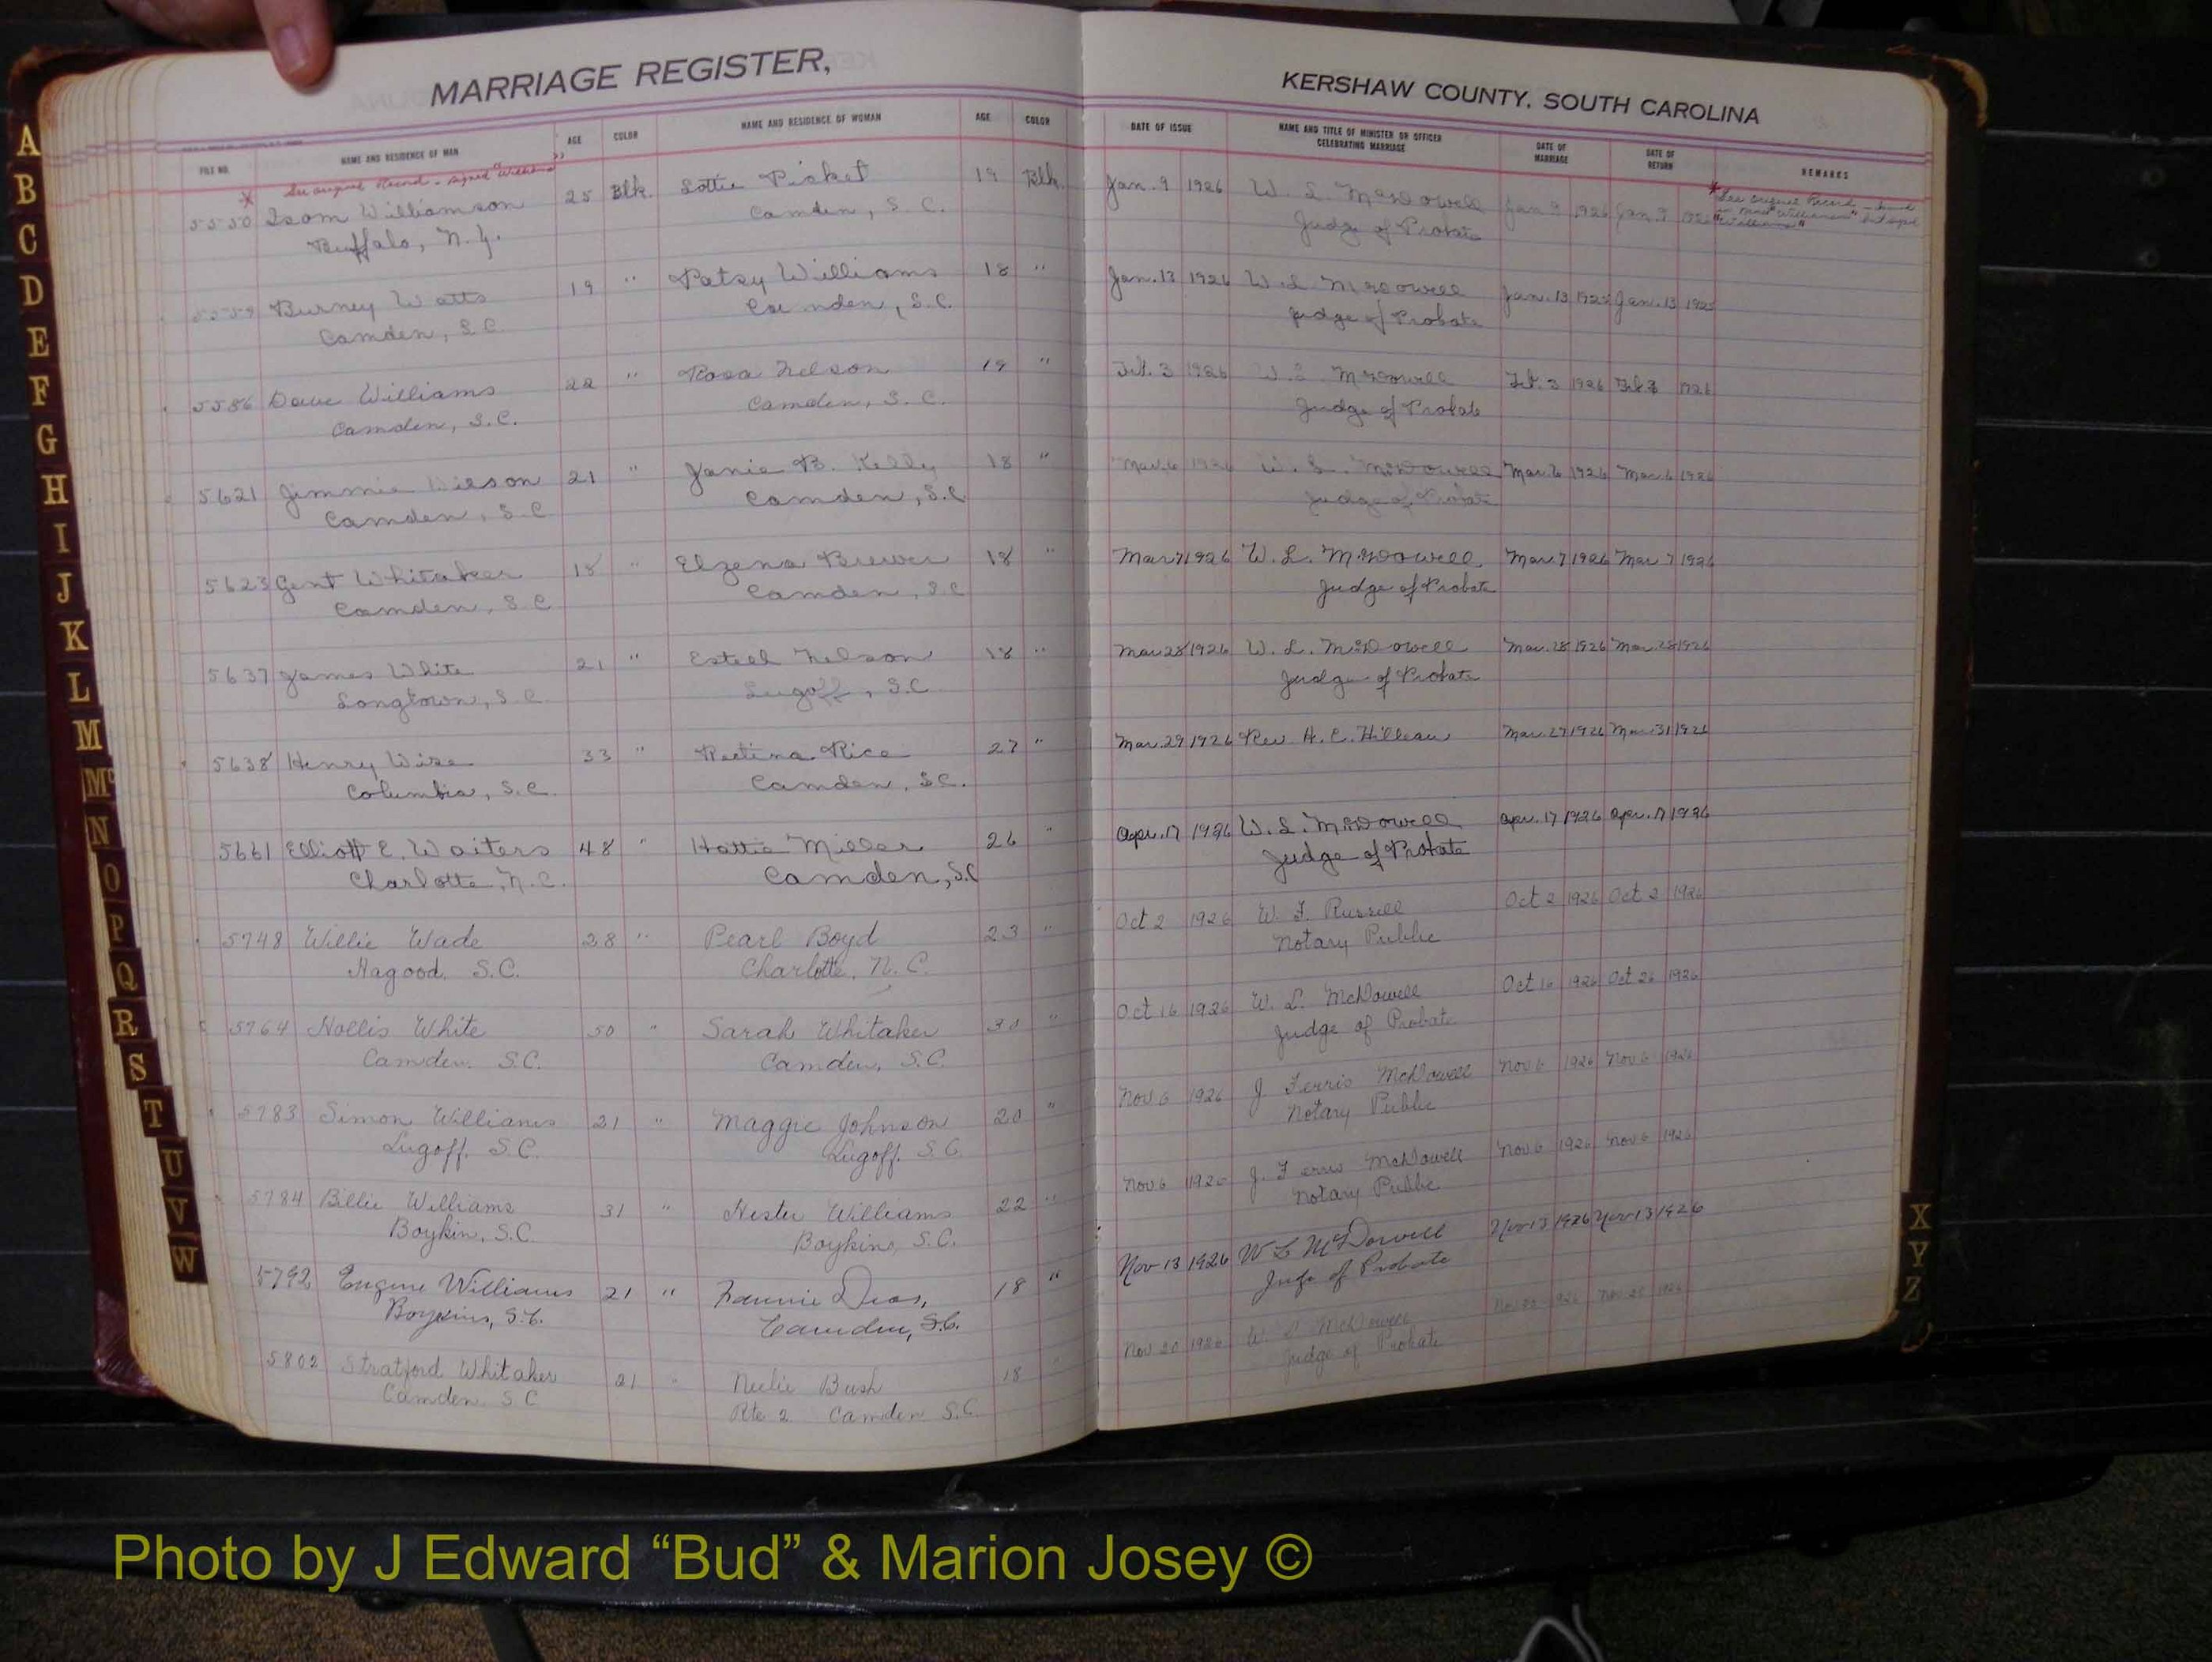 MARRIAGE REGISTER,
KERSHAW COUNTY, SOUTH CAROLINA
FILE NO. NAME AND RESIDENCE OF MAN AGE COLOR NAME AND RESIDENCE OF WOMAN AGE COLOR DATE OF ISSUE NAME AND TITLE OF MINISTER OR OFFICER CELEBRATING MARRIAGE DATE OF MARRIAGE DATE OF RETURN REMARKS
* See original Record - signed "Williams"
5550 Isom Williamson 25 Blk. Lottie Picket 19 Blk. Jan. 9 1926 W. L. McDowell Jan 9 1926 Jan. 9
Buffalo, N.Y. Camden, S.C. Judge of Probate
* See original Record "Williamson" but signed "Williams"
5559 Burney Watts 19 " Patsy Williams 18 " Jan. 13 1926 W. L. McDowell Jan. 13 Jan. 13
Camden, S.C. Camden, S.C. Judge of Probate
5586 Dave Williams 22 " Rosa Nelson 19 " Feb. 3 1926 W. L. McDowell Feb. 3 1926 Feb. 3 1926
Camden, S.C. Camden, S.C. Judge of Probate
5621 Jimmie Wilson 21 " Janie B. Kelly 18 " Mar. 6 1926 W. L. McDowell Mar. 6 1926 Mar. 6 1926
Camden, S.C. Camden, S.C. Judge of Probate
5623 Gent Whitaker 18 " Elzena Brewer 18 " Mar 7 1926 W. L. McDowell Mar. 7 1926 Mar 7 1926
Camden, S.C. Camden, S.C. Judge of Probate
5637 James White 21 " Esteel Nelson 18 " Mar 28 1926 W. L. McDowell Mar. 28 1926 Mar. 28 1926
Longtown, S.C. Lugoff, S.C. Judge of Probate
5638 Henry Wise 33 " Rice 27 " Mar. 29 1926 Rev. A. C. Mar. 29 1926 Mar. 31 1926
Columbia, S.C. Camden, S.C.
5661 Elliott E. Waiters 48 " Hattie Miller 26 " Apr. 17 1926 W. L. McDowell Apr. 17 1926 Apr. 17 1926
Charlotte, N.C. Camden, S.C. Judge of Probate
5748 Willie Wade 28 " Pearl Boyd 23 " Oct 2 1926 W. F. Russell Oct 2 1926 Oct 2 1926
Hagood. S.C. Charlotte, N.C. Notary Public
5764 Hollis White 50 " Sarah Whitaker 30 " Oct 16 1926 W. L. McDowell Oct 16 1926 Oct 26 1926
Camden. S.C. Camden, S.C. Judge of Probate
5783 Simon Williams 21 " Maggie Johnson 20 " Nov 6 1926 J Ferris McDowell Nov 6 1926 Nov 6 1926
Lugoff. S.C. Lugoff. S.C. Notary Public
5784 Billie Williams 31 " Hester Williams 22 " Nov 6 1926 J. Ferris McDowell Nov 6 1926 Nov 6 1926
Boykin, S.C. Boykins, S.C. Notary Public
5792 Eugene Williams 21 " Fannie Deas, 18 " Nov 13 1926 W L McDowell Nov 13 1926 Nov 13 1926
Boykins, S.C. Camden, S.C. Judge of Probate
5802 Stratford Whitaker 21 " Bush 18 " Nov 20 1926 W L McDowell Nov 20 1926 Nov 20 1926
Camden. S C Rte 2 Camden S.C. Judge of Probate
A
B
C
D
E
F
G
H
I
J
K
L
M
Mc
N
O
P
Q
R
S
T
U
V
W
X
Y
Z
Photo by J Edward “Bud” & Marion Josey ©